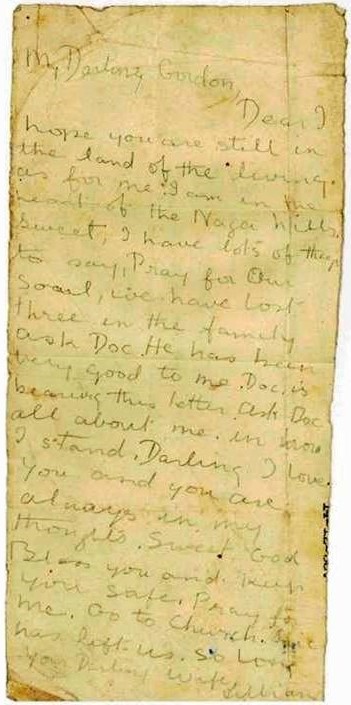 My Darling Gordon,
Dear I
hope you are still in
the land of the living.
as for me I am in the
heart of the Naga Hills.
Sweet, I have lots of things
to say, Pray for Our
Soael, we have Lost
three in the family
ask Doc. He has been
very good to me. Doc. is
bearing this letter. Ask Doc
all about me. in how
I stand. Darling I love
you and you are
always in my
thoughts. Sweet God
Bless you and keep
you safe. Pray to
me. Go to Church.
has left us. So Long
Your Darling Wife
Lillian